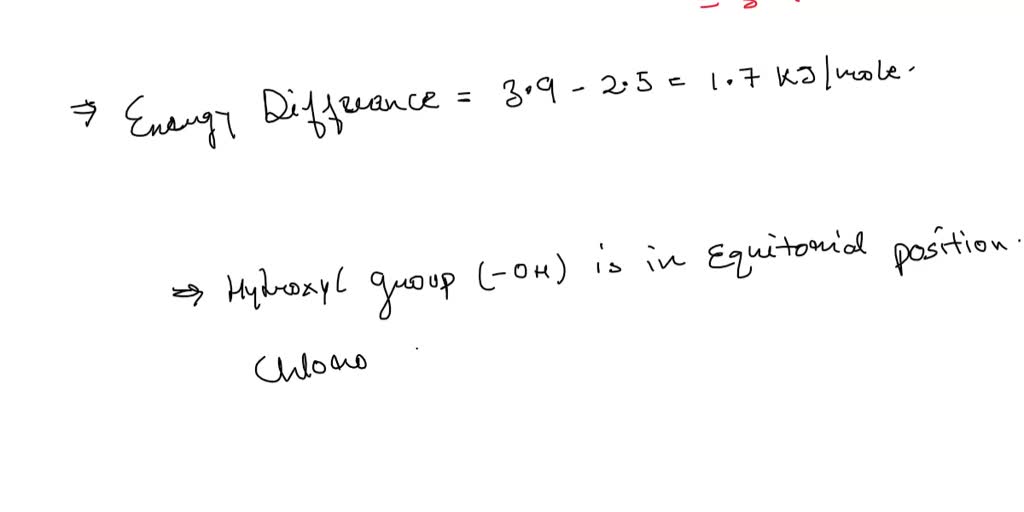 ⇒ Energy Difference = 3.9 - 2.5 = 1.7 KJ/mole.
⇒ Hydroxyl group (-OH) is in Equitorial position.
Chloro